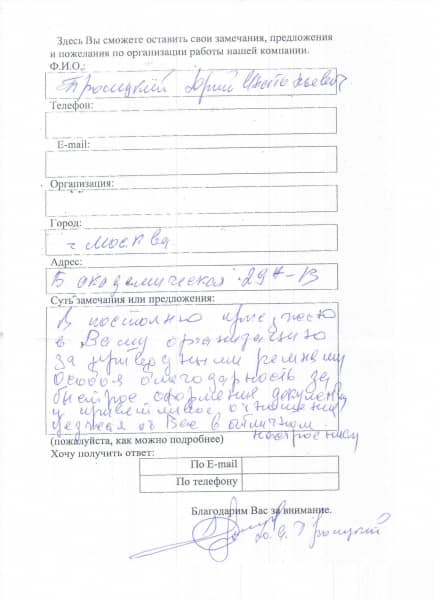 Здесь Вы сможете оставить свои замечания, предложения
и пожелания по организации работы нашей компании.
Ф.И.О.:
Троицкий Юрий
Телефон:
E-mail:
Организация:
Город:
г Москва
Адрес:
Б академическая 29
Суть замечания или предложения:
Я постоянно приезжаю
в Вашу организацию
за
Особая благодарность за
быстрое оформление
и приветливое отношение
уезжая от Вас в отличном
настроении
(пожалуйста, как можно подробнее)
Хочу получить ответ:
По E-mail
По телефону
Благодарим Вас за внимание.
Троицкий